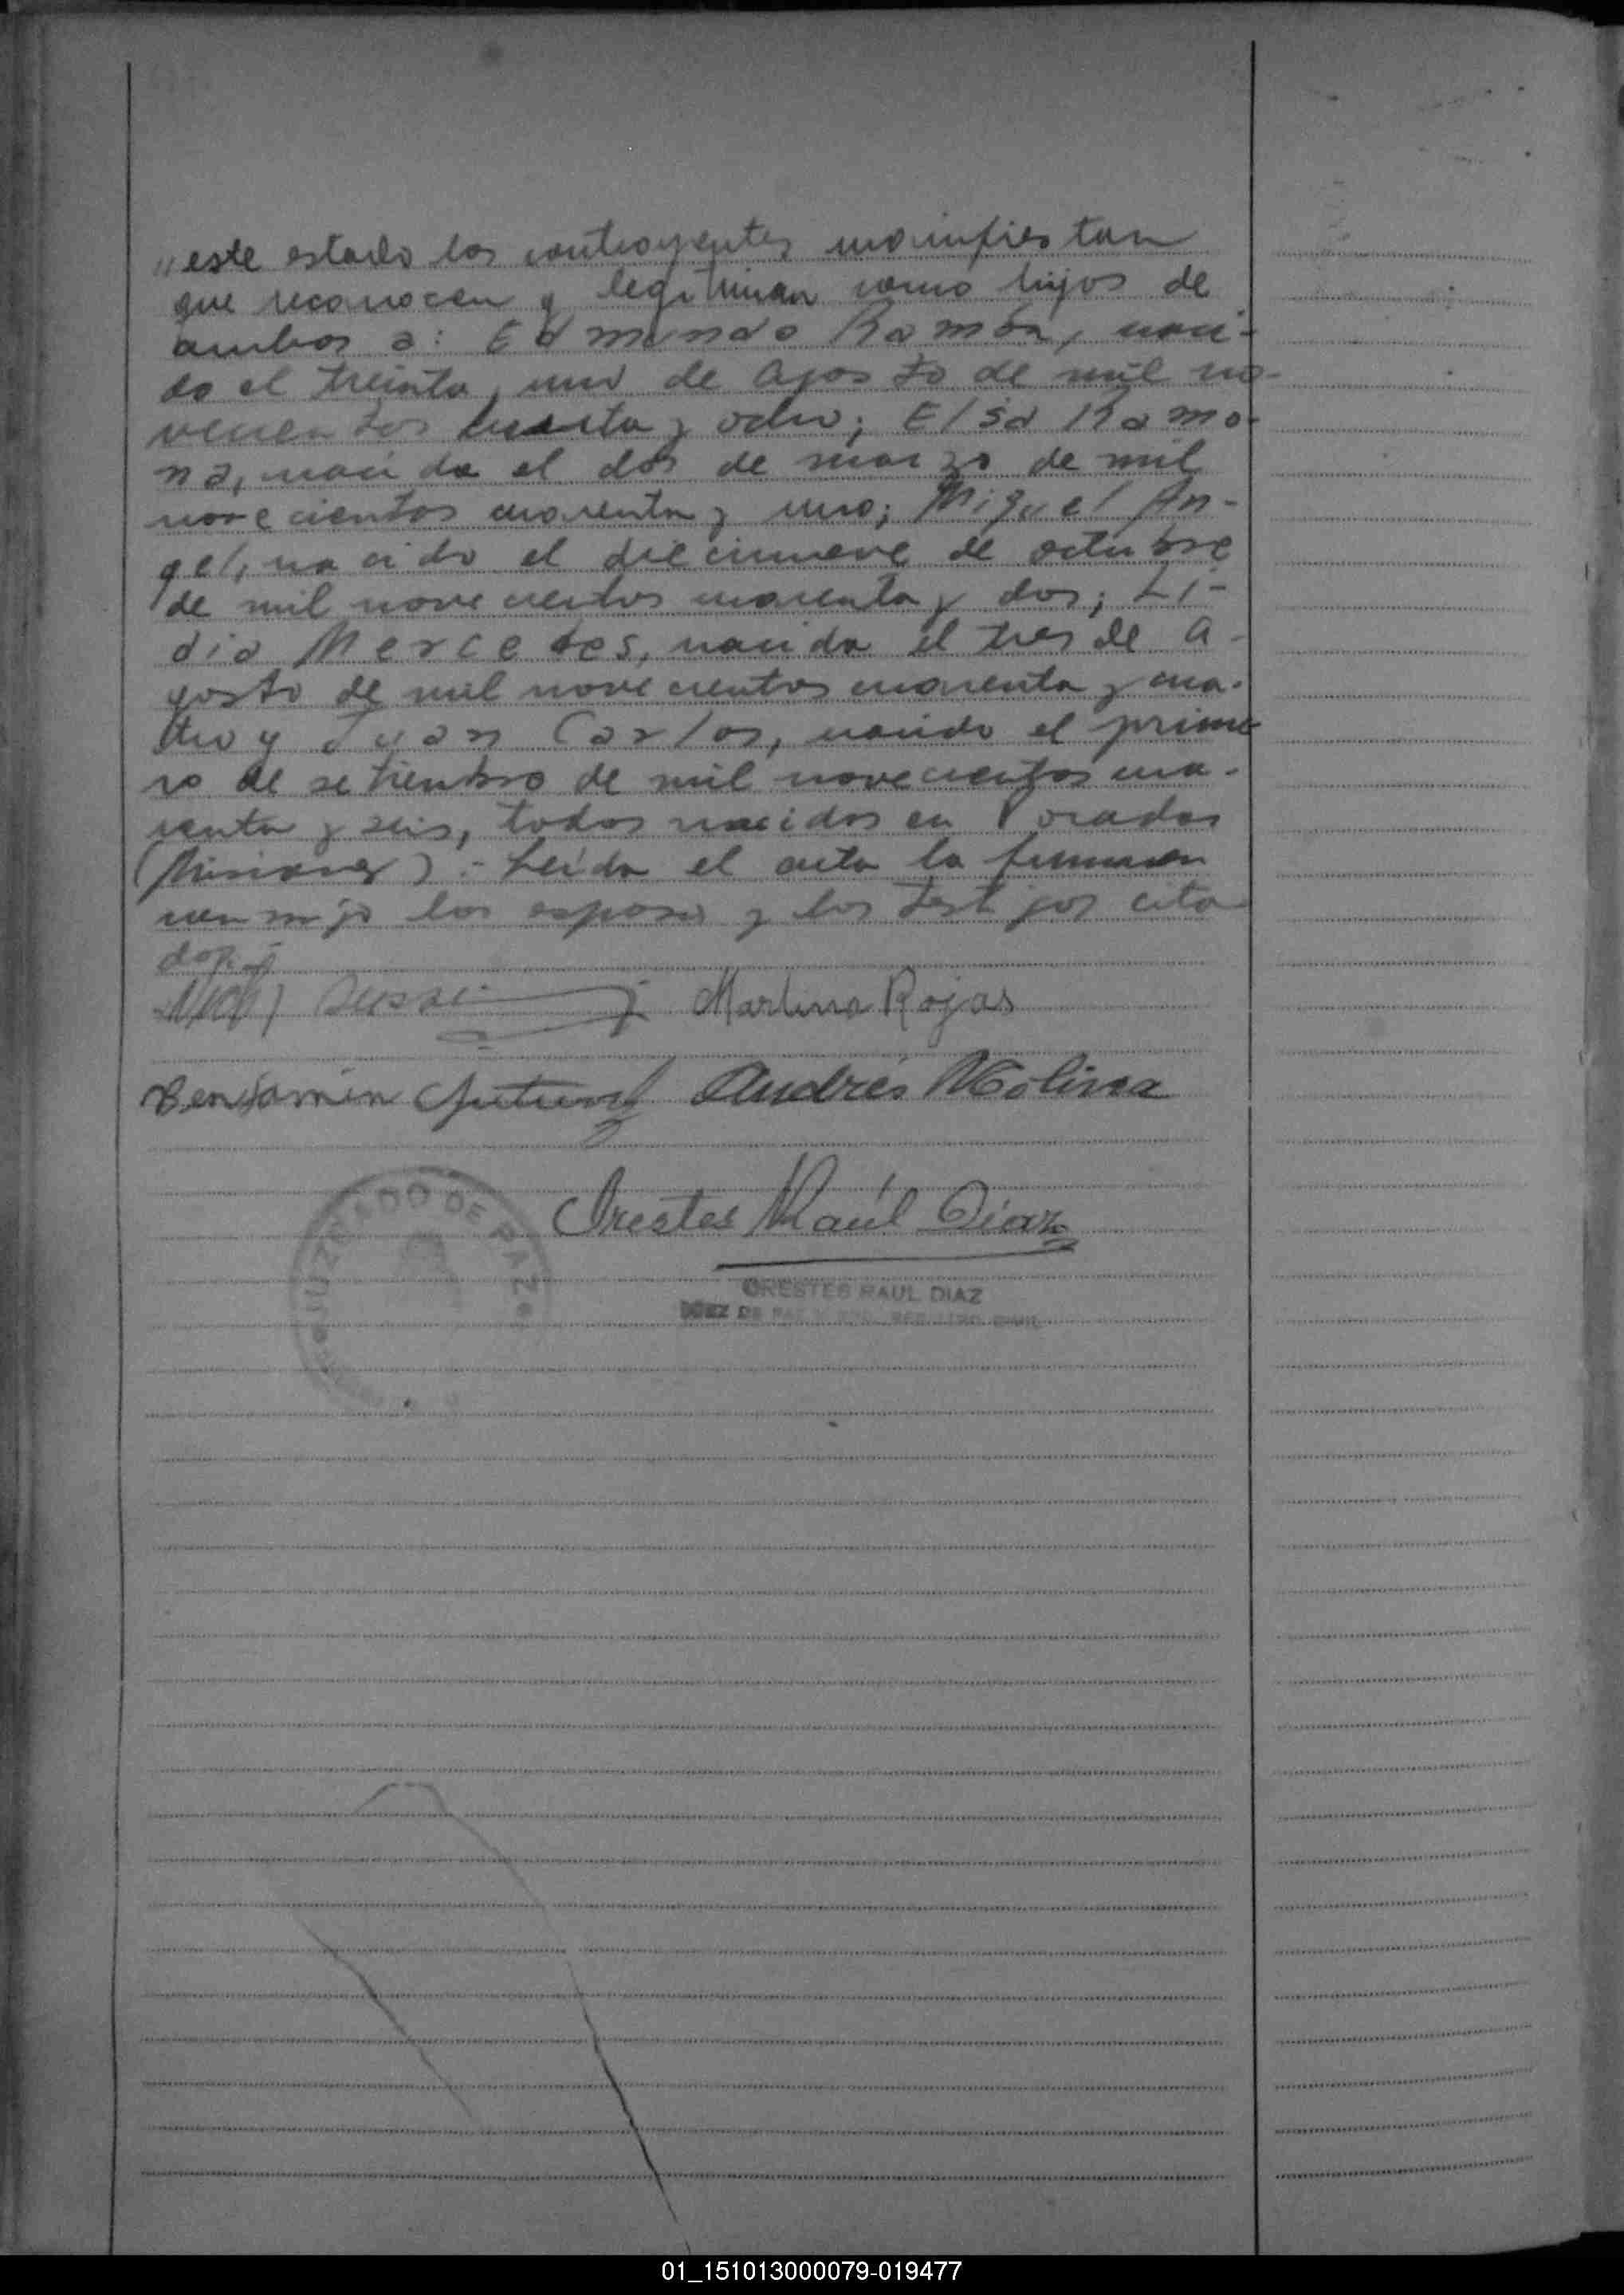 "este estado los contrayentes manifiestan
que reconocen y legitiman como hijos de
ambos a: Edmundo Ramón, naci-
do el treinta uno de Agosto de mil no-
vecientos treinta y ocho; Elsa Ramo-
na, nacida el dos de marzo de mil
novecientos cuarenta y uno; Miguel An-
gel, nacido el diecinueve de octubre
de mil novecientos cuarenta y dos; Li-
dia Mercedes, nacida el tres de a-
gosto de mil novecientos cuarenta y cua-
tro y Juan Carlos, nacido el prime
ro de setiembre de mil novecientos cua-
renta y seis, todos nacidos en Posadas
(Misiones).- Leída el acta la firman
con migo los esposos y los testigos cita
dos.-
Martina Rojas
Benjamin Andrés Molina
Orestes Raúl Díaz
JUZGADO DE PAZ
ORESTES RAUL DIAZ
JUEZ DE PAZ REGISTRO CIVIL
01_151013000079-019477